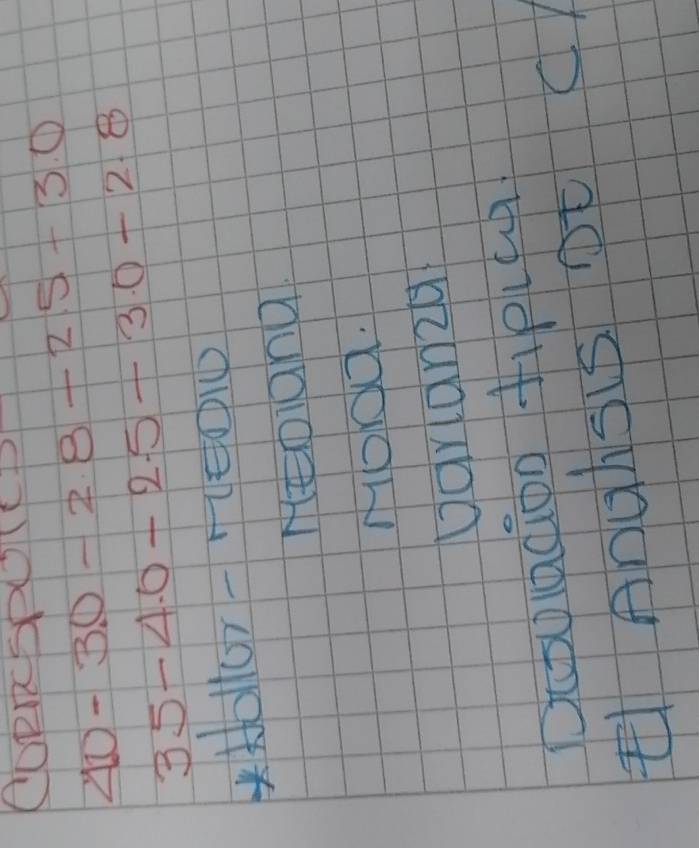 40 - 3.0 - 2.8 - 2.5 - 3.0
3.5 - 4.0 - 2.5 - 3.0 - 2.8
* Hallar - MEDIO
MEDIANA.
MODA.
Varianza.
Desviación típica.
El Analisis DE C/